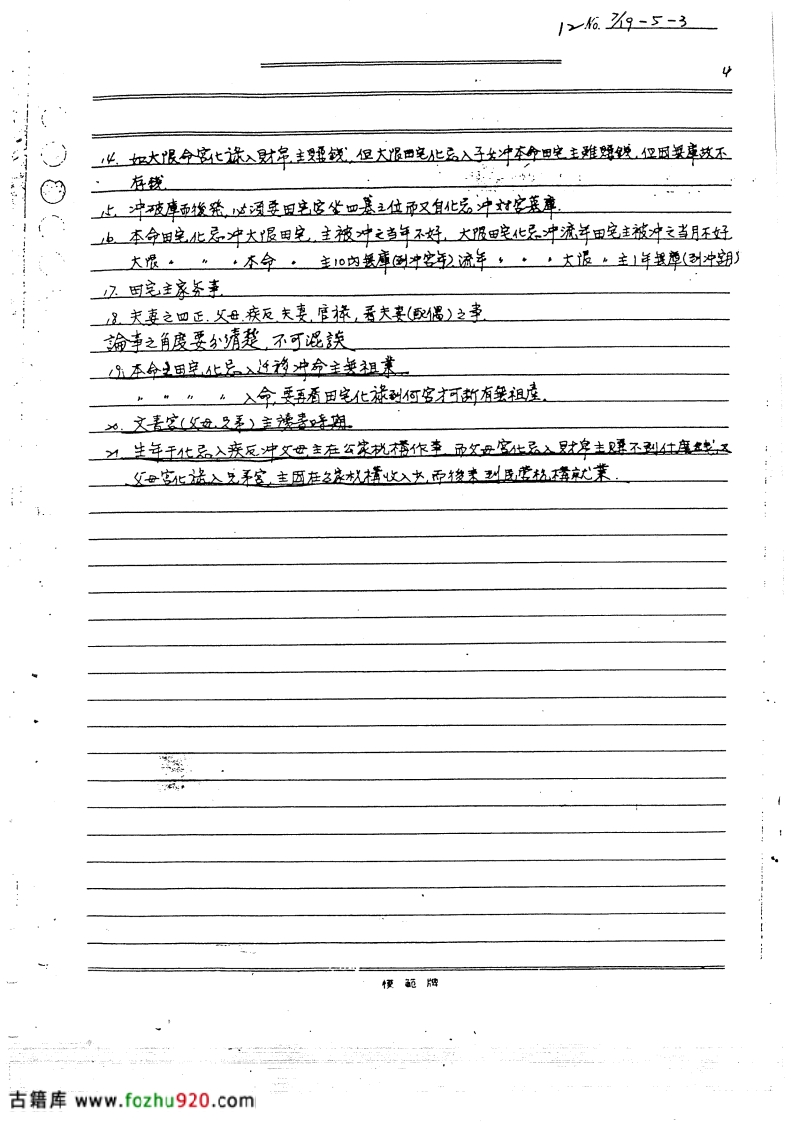 12 No. 7/19-5-3
4
14. 如大限命宮化祿入財帛,主賺錢,但大限田宅化忌入子女冲本命田宅主雖賺錢,但因無庫故不
存錢
15. 冲破庫而後発,必須要田宅宮坐四墓之位而又自化忌冲对宮墓庫.
16. 本命田宅化忌冲大限田宅,主被冲之当年不好,大限田宅化忌冲流年田宅主被冲之当月不好
大限 〃 〃 〃本命 〃 主10內無庫(到冲宮年)流年 〃 〃 〃大限 〃主1年無庫(到冲宮月)
17. 田宅主家务事
18. 夫妻之四正.父母.疾厄夫妻,官祿,看夫妻(配偶)之事
論事之角度要分清楚,不可混談
19. 本命田宅化忌入迁移冲命主無祖業
〃 〃 〃 〃入命,要再看田宅化祿到何宮才可断有無祖産.
20. 文書宮(父母.兄弟)主讀書時期.
21. 生年干化忌入疾厄冲父母主在公家机構作事,而父母宮化忌入財帛主賺不到什麼錢,又
父母宮化祿入兄弟宮,主因在公家机構收入少,而後来到民营机構就業.
模範牌
古籍库 www.fozhu920.com